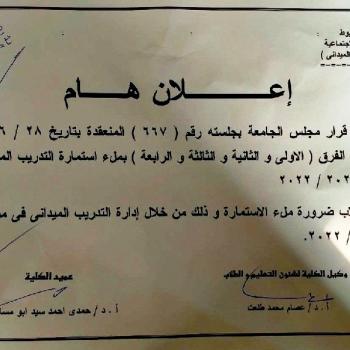 يوط
جتماعية
الميدانى )
إعــــلان هــــام
قرار مجلس الجامعة بجلسته رقم ( ٦٦٧ ) المنعقدة بتاريخ ٢٨ / ٦
الفرق ( الاولى و الثانية و الثالثة و الرابعة ) بملء استمارة التدريب الم
٢٠٢٢ /
ب ضرورة ملء الاستمارة و ذلك من خلال إدارة التدريب الميدانى فى م
/ ٢٠٢٢.
وكيل الكلية لشئون التعليم و الطلاب
عميد الكلية
أ.د/ عصام محمد طلعت
أ.د/ حمدى احمد سيد ابو مسا